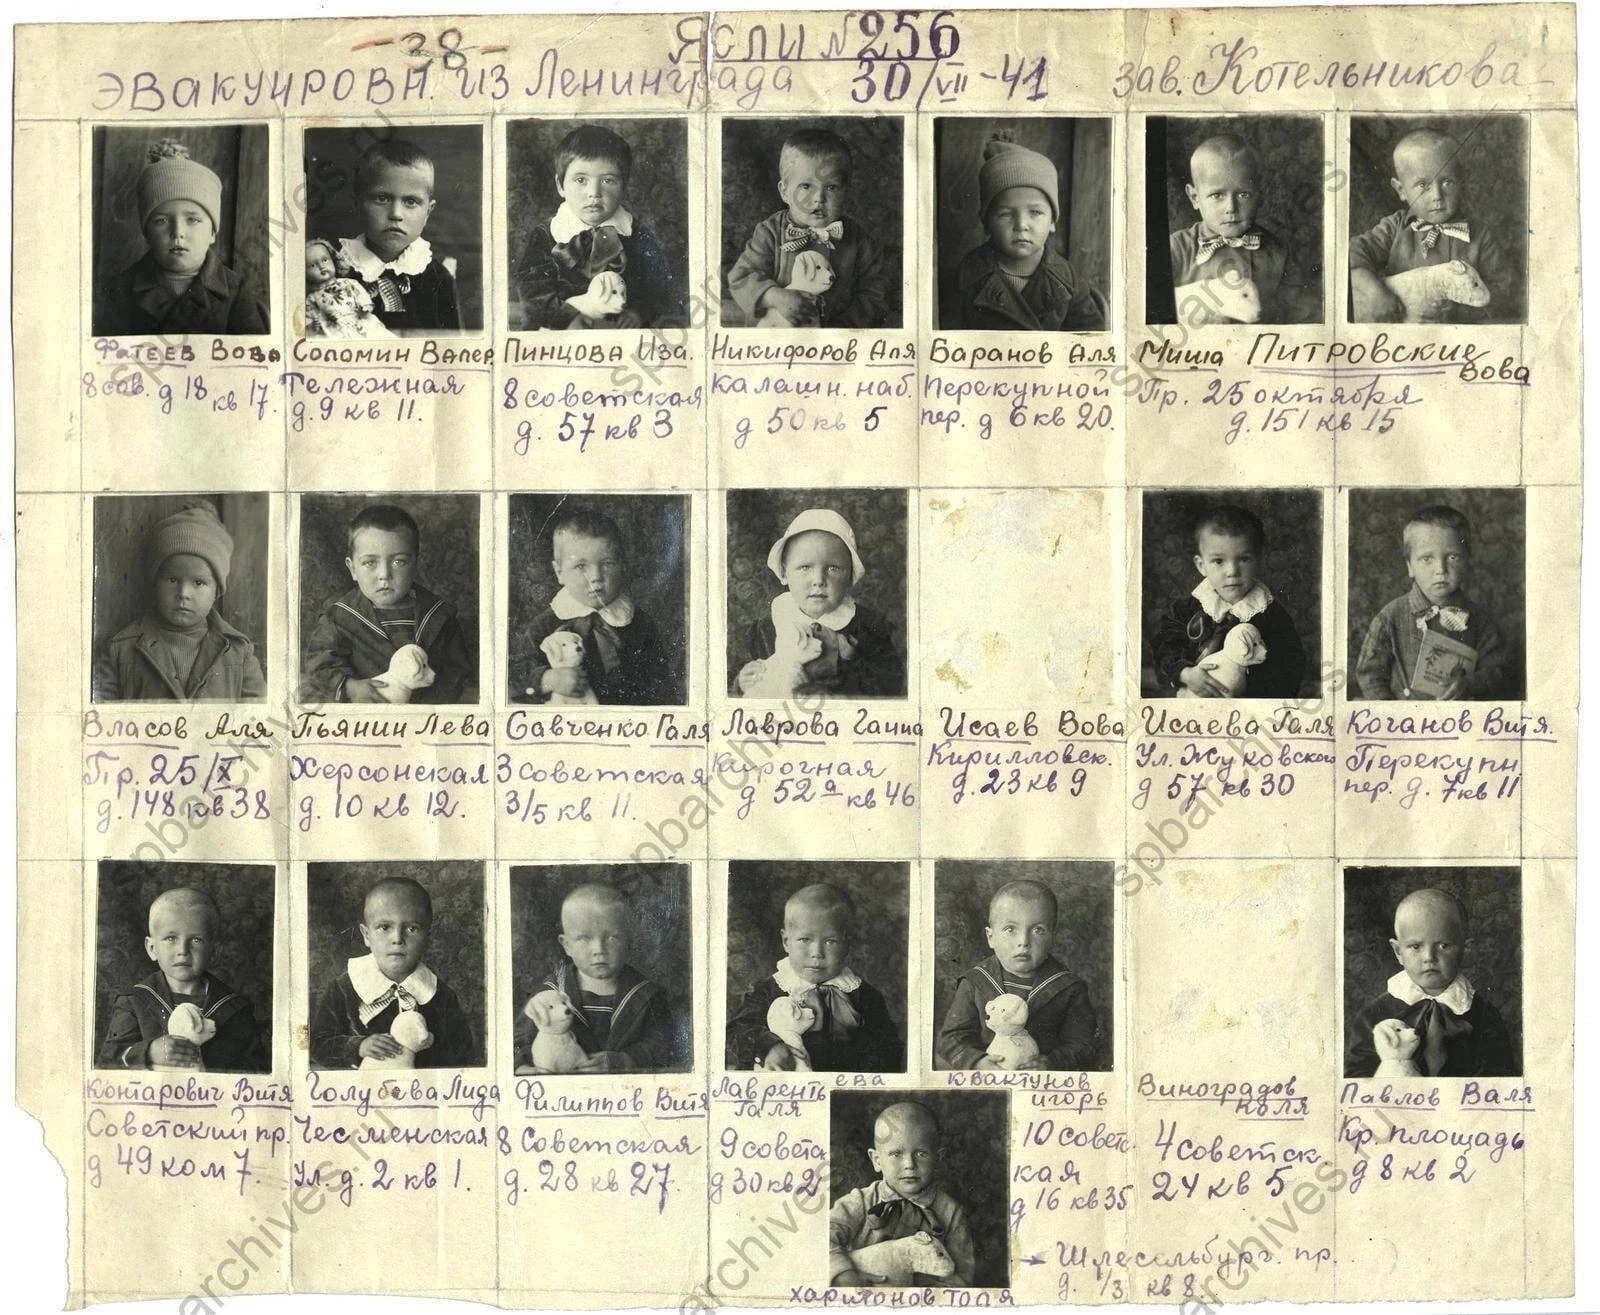 -38-
Ясли № 256
Эвакуирован. из Ленинграда 30/VII-41 зав. Котельникова
Фатеев Вова
8 сов. д 18
кв 17.
Соломин Валер
Тележная
д. 9 кв 11.
Пинцова Иза.
8 советская
д. 57 кв 3
Никифоров Аля
Калашн. наб.
д 50 кв 5
Баранов Аля
Перекупной
пер. д 6 кв 20.
Миша Питровские Вова
Пр. 25 октября
д. 151 кв 15
Власов Аля
Пр. 25/X
д. 148 кв 38
Пьянин Лева
Херсонская
д. 10 кв 12.
Савченко Галя
3 советская
3/5 кв 11.
Лаврова Ганна
Кирочная
д 52а кв 46
Исаев Вова
Кирилловск.
д. 23 кв 9
Исаева Галя
Ул. Жуковского
д 57 кв 30
Коганов Витя.
Перекупн
пер. д. 7 кв 11
Контарович Витя
Советский пр.
д 49 ком 7.
Голубева Лида
Чесменская
ул. д. 2 кв 1.
Филиппов Витя
8 Советская
д. 28 кв 27.
Лаврентьева
Галя
9 советс
д 30 кв 2
Квактунов
Игорь
10 советс
кая
д 16 кв 35
Виноградов
Коля
4 советск
24 кв 5
Павлов Валя
Кр. площадь
д 8 кв 2
Харитонов Толя
→ Шлесельбург. пр.
д. 1/3 кв 8.
spbarchives.ru